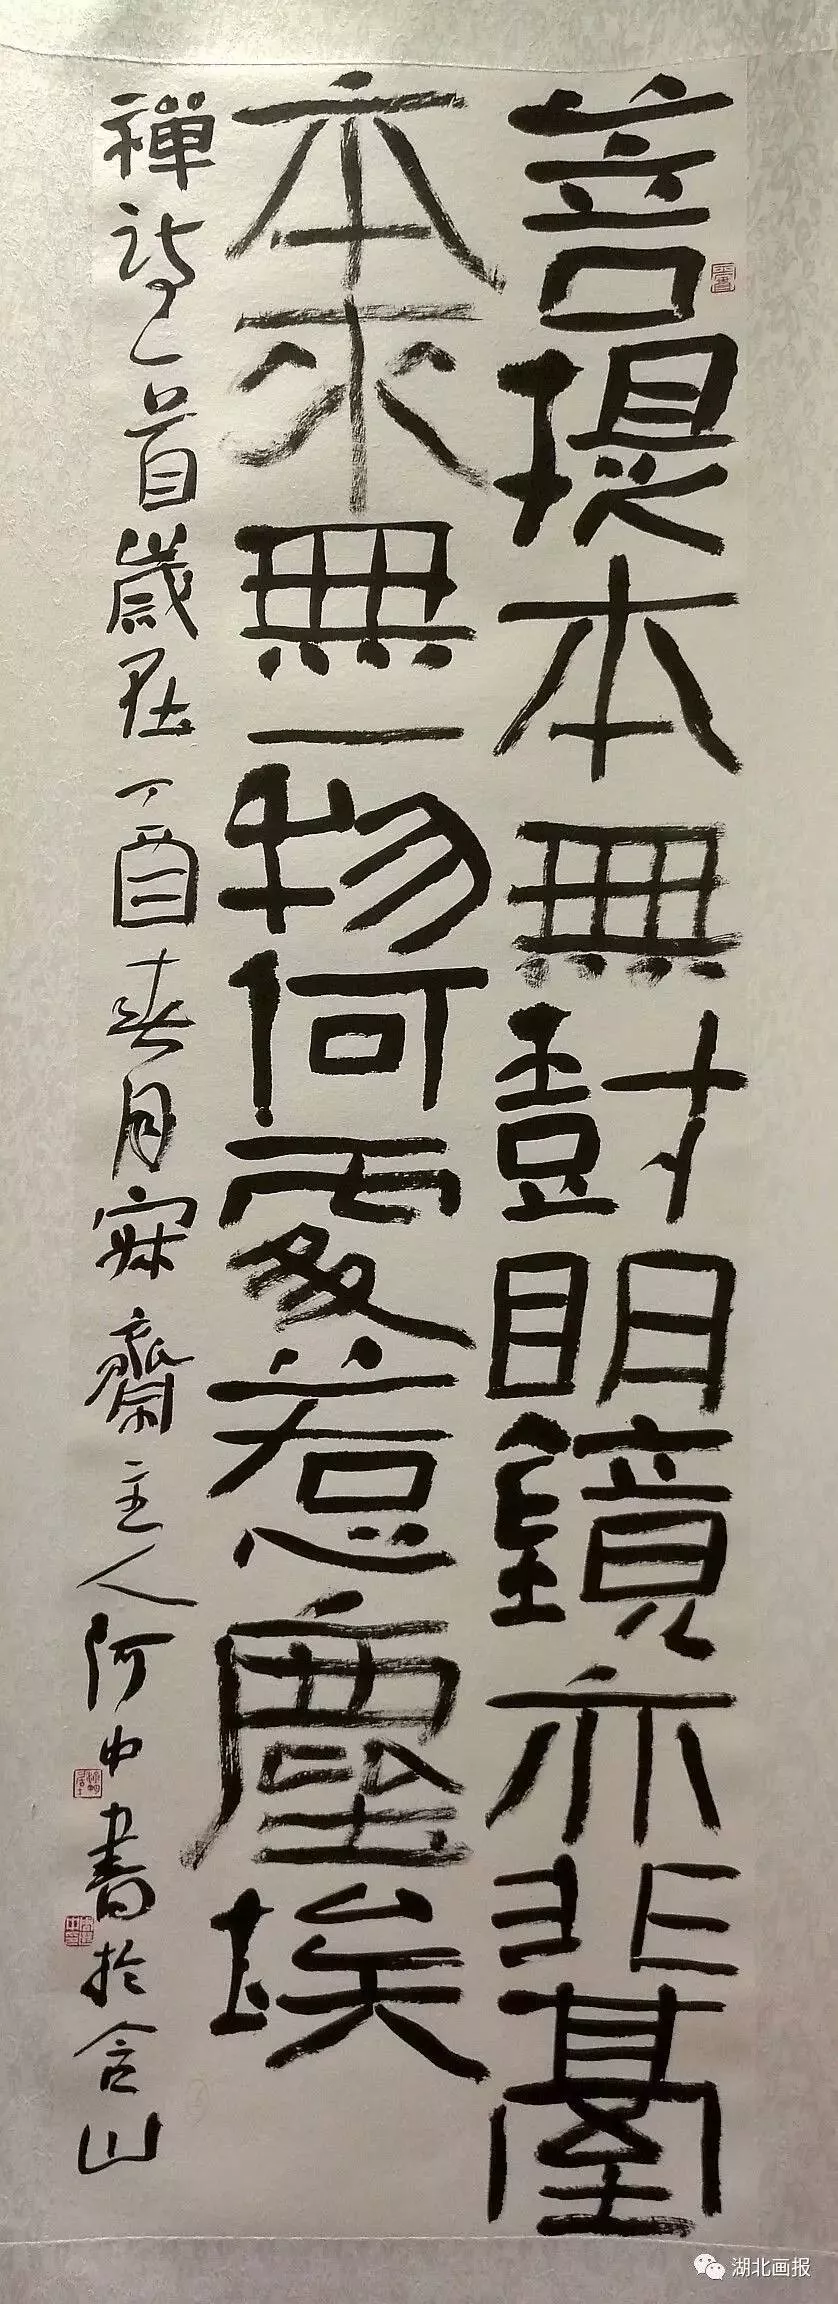 菩提本無樹明鏡亦非臺
本來無一物何處惹塵埃
禪詩一首歲在丁酉春月寐齋主人阿中書於含山
湖北画报